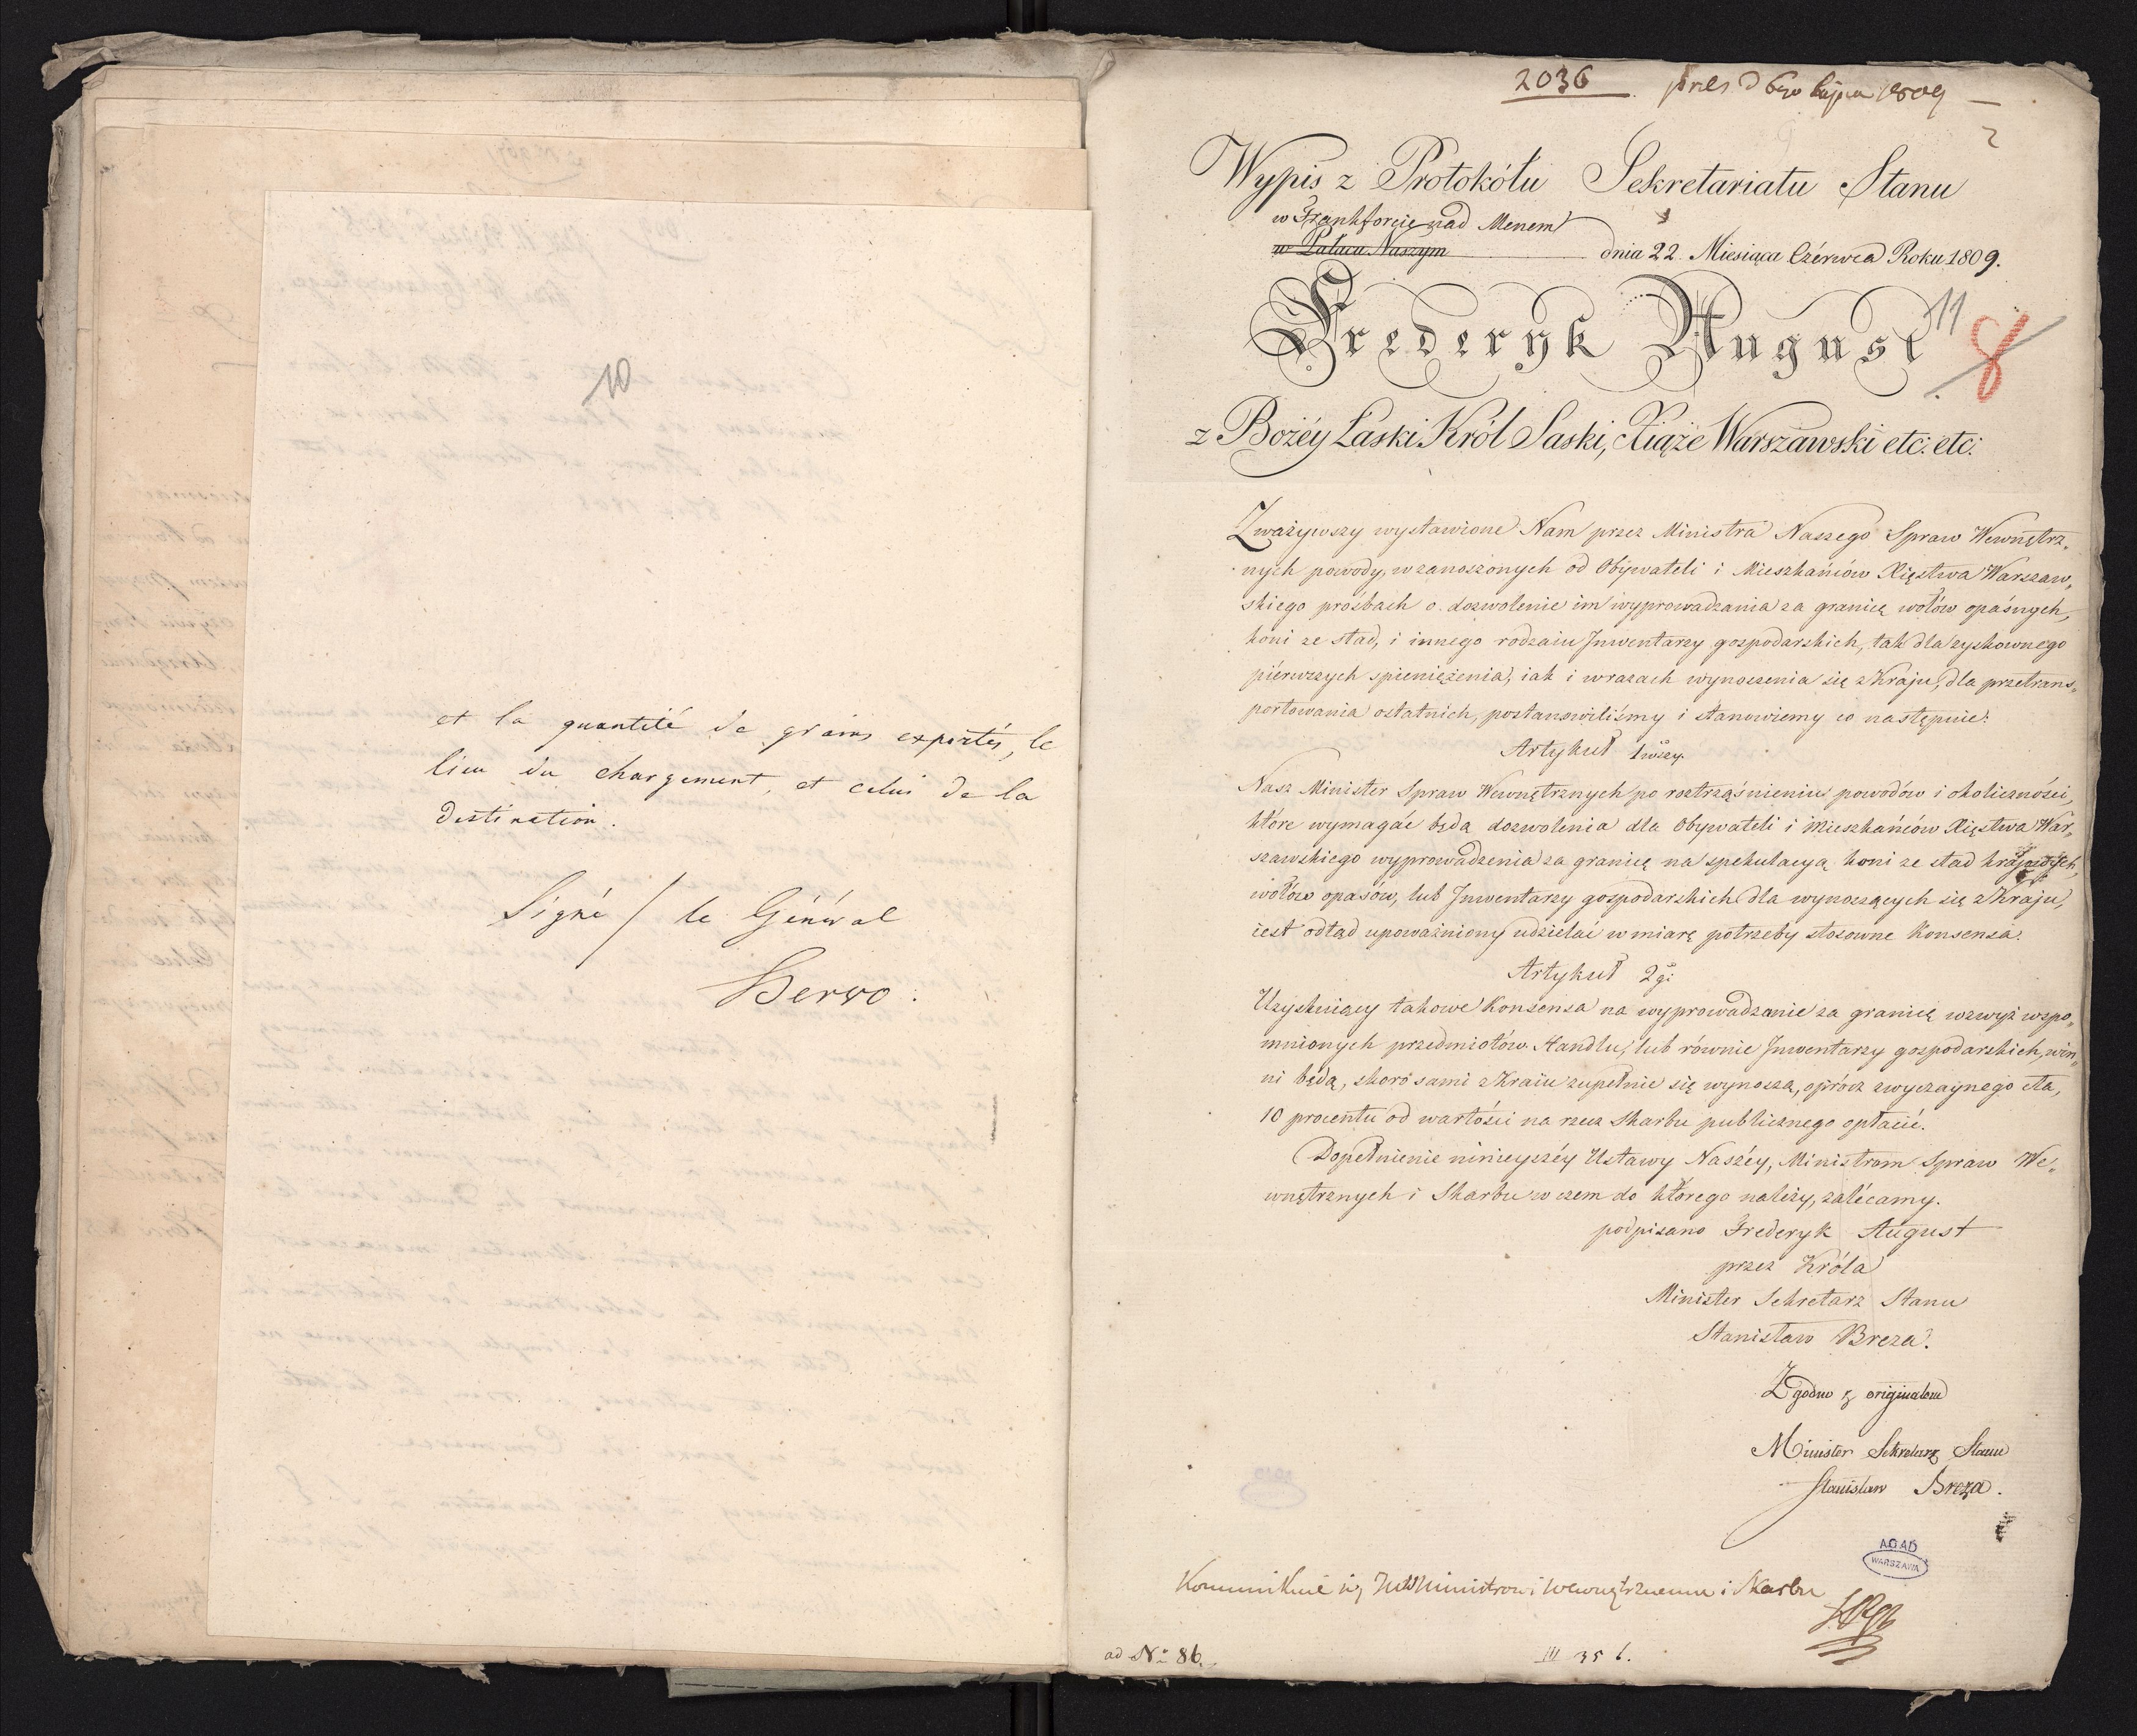 10
et la quantité de grains exportés, le
lieu du chargement, et celui de la
destination.
Signé / le Général
2036 pres d 6go lipca 1809
2
Wypis z Protokółu Sekretariatu Stanu
w Frankforcie nad Menem
w Pałacu Naszym dnia 22. Miesiąca Czérwca Roku 1809.
Frederyk August
11
8
z Bożéy Łaski Król Saski, Xiąże Warszawski etc: etc:
Zważywszy wystawione Nam przez Ministra Naszego Spraw Wewnętrz„
nych powody, w zanoszonych od Obywateli i Mieszkańców Xięstwa Warszaw„
skiego prośbach o dozwolenie im wyprowadzania za granicę wołów opaśnych,
koni ze stad, i innego rodzaiu Inwentarzy gospodarskich, tak dla zyskownego
piérwszych spieniężenia, iak i w razach wynoszenia się z Kraju, dla przetrans„
portowania ostatnich, postanowiliśmy i stanowiemy co następuie:
Artykuł 1wszy.
Nasz Minister Spraw Wewnętrznych po roztrząśnieniu powodów i okoliczności,
które wymagać będą dozwolenia dla Obywateli i Mieszkańców Xięstwa War„
szawskiego wyprowadzenia za granicę na spekulacyą koni ze stad krajowych,
wołów opasów, lub Inwentarzy gospodarskich dla wynoszących się z Kraju,
iest odtąd upoważniony udzielać w miarę potrzeby stosowne Konsensa.
Artykuł 2gi
Uzyskuiący takowe Konsensa na wyprowadzanie za granicę wzwyż wspo„
mnionych przedmiotów Handlu, lub równie Inwentarzy gospodarskich, win„
ni będą, skoro sami z Kraiu zupełnie się wynoszą, oprócz zwyczaynego cła,
10 procentu od wartości na rzecz Skarbu publicznego opłacić.
Dopełnienie ninieyszéy Ustawy Naszéy, Ministrom Spraw We„
wnętrznych i Skarbu w czem do którego należy, zalécamy.
podpisano Frederyk August
przez Króla
Minister Sekretarz Stanu
Stanisław Breza.
Zgodno z originałem
Minister Sekretarz Stanu
Stanisław Breza.
AGAD
WARSZAWA
Ministrowi Wewnętrznemu i Skarbu
ad No 86.
III 35 b.